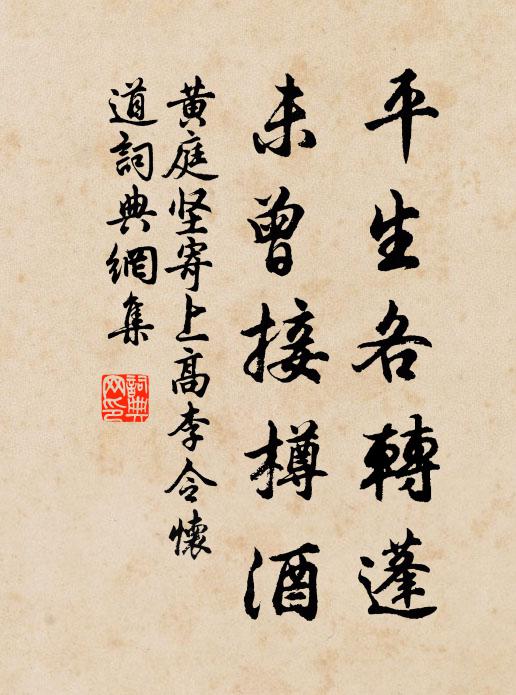 平生各轉蓬
未曾接樽酒
黄庭坚寄上高李令懷
道詞典網集
詞典
网印